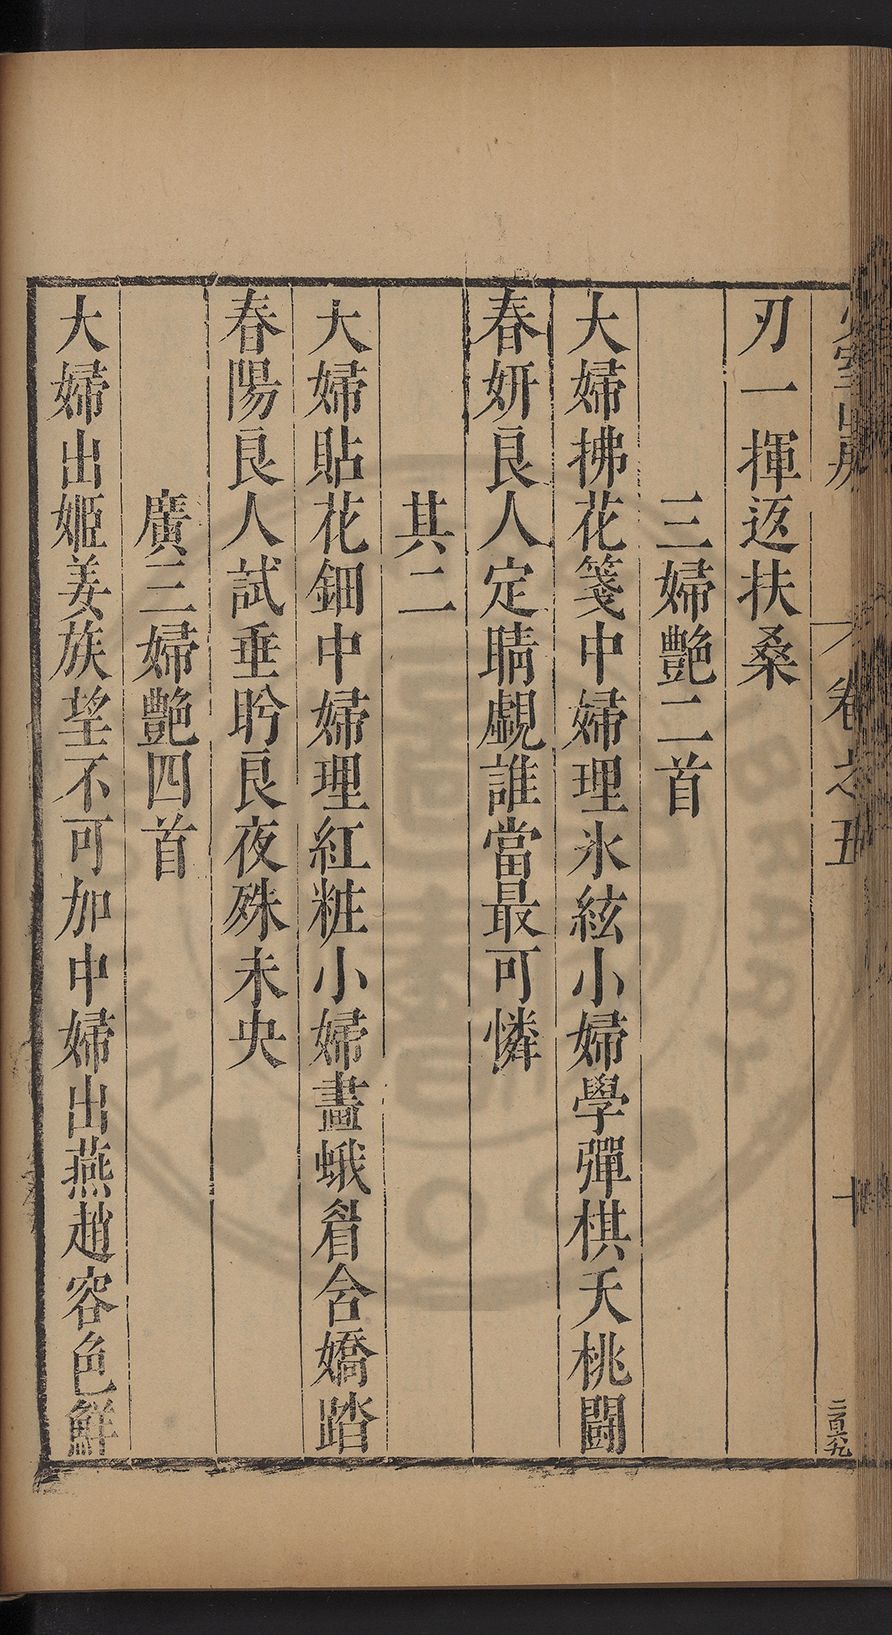 卷之五
十
刃一揮返扶桑
三婦艷二首
大婦拂花箋中婦理氷絃小婦學彈棋夭桃鬪
春妍良人定睛覷誰當最可憐
其二
大婦貼花鈿中婦理紅粧小婦畫蛾眉含嬌踏
春陽良人試垂盻良夜殊未央
廣三婦艷四首
大婦出姬姜族望不可加中婦出燕趙容色鮮